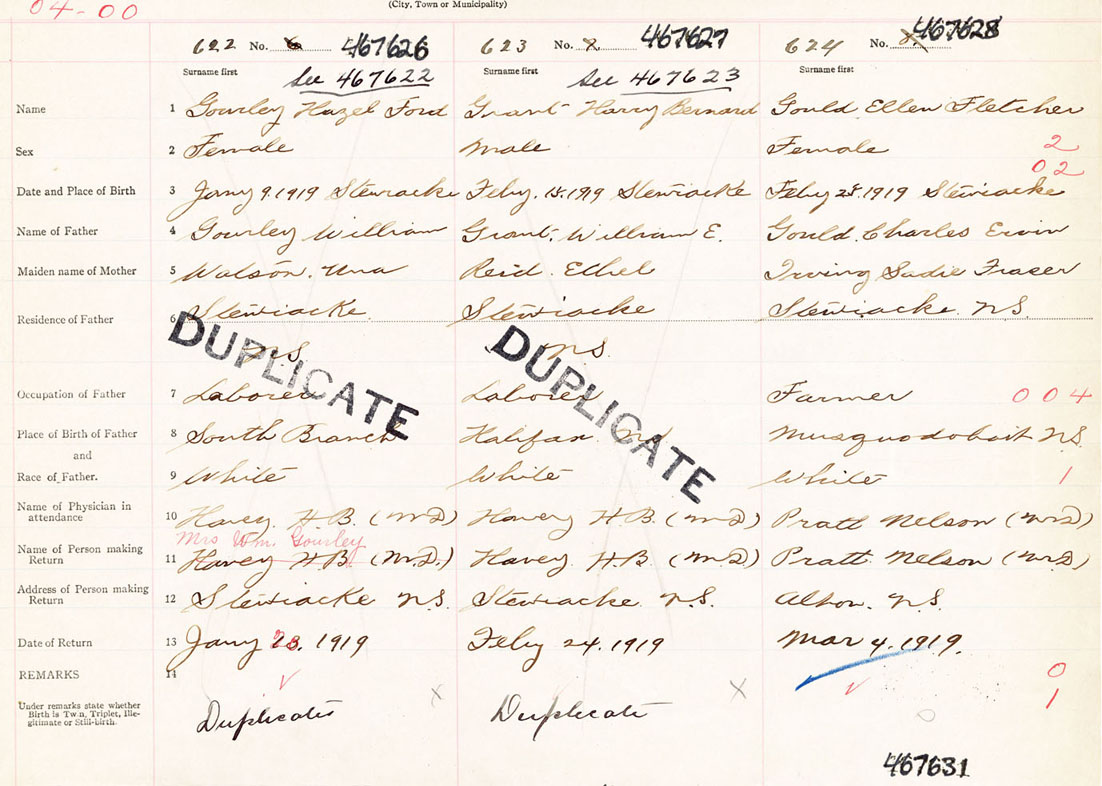 04-00
(City, Town or Municipality)
622 No. 6 467626 623 No. 7 467627 624 No. 8 467628
Surname first See 467622 Surname first See 467623 Surname first
Name 1 Gourley Hazel Ford Grant Harry Bernard Gould Ellen Fletcher
Sex 2 Female Male Female 2
02
Date and Place of Birth 3 Jany 9. 1919 Stewiacke Feby. 15. 1919 Stewiacke Feby 25. 1919 Stewiacke
Name of Father 4 Gourley William Grant, William E. Gould. Charles Ervin
Maiden name of Mother 5 Watson. Una Reid. Ethel Irving Sadie Fraser
Residence of Father 6 Stewiacke. Stewiacke Stewiacke. N.S.
N.S. N.S.
DUPLICATE DUPLICATE
Occupation of Father 7 Laborer Laborer Farmer 004
Place of Birth of Father 8 South Branch Halifax Musquodoboit N.S.
and
Race of Father. 9 White White White 1
Name of Physician in
attendance 10 Havey. H.B. (M.D) Havey H.B. (M.D) Pratt Nelson (M.D)
Mrs Wm. Gourley
Name of Person making
Return 11 Havey H.B. (M.D.) Havey. H.B. (M.D) Pratt Nelson (M.D)
Address of Person making
Return 12 Stewiacke N.S. Stewiacke. N.S. Alton. N.S.
Date of Return 13 Jany 23. 1919 Feby 24. 1919 Mar 4. 1919.
REMARKS 14 0
Under remarks state whether
Birth is Twin, Triplet, Ille-
gitimate or Still-birth. Duplicate Duplicate 1
467631